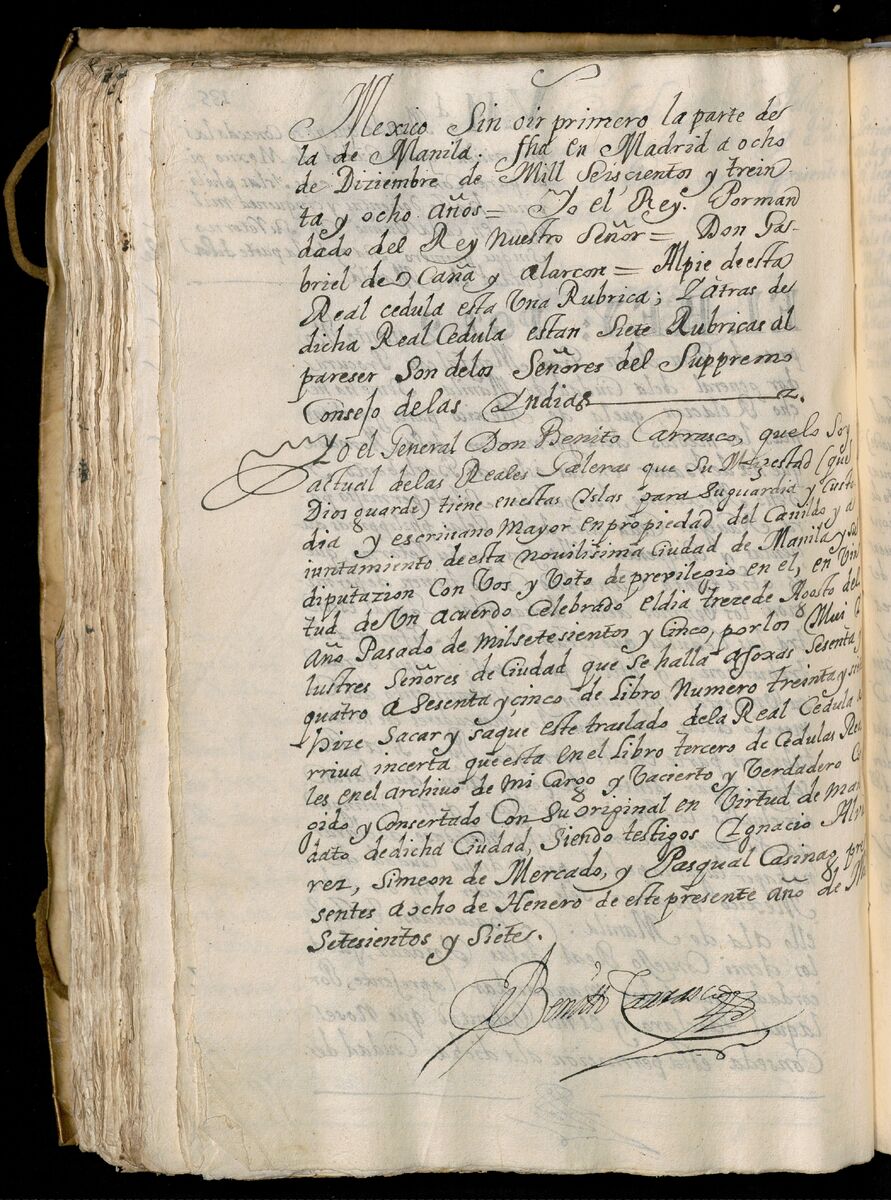 Mexico Sin oir primero la parte de
la de Manila. fha en Madrid a ocho
de Diziembre de Mill Seiscientos y trein
ta y ocho años = Yo el Rey. Porman
dado del Rey Nuestro Señor = Don Ga-
briel de Ocaña y alarcon = Alpie deesta
Real cedula esta Una Rubrica; Yatras de
dicha Real Cedula estan Siete Rubricas al
pareser Son delos Señores del Suppremo
Consejo delas Yndias
Yo el General Don Benito Carrasco, quelo Soy
actual delas Reales Galeras que Su Magestad (que
Dios guarde) tiene enestas Yslas para Suguardia y Custo
dia y escrivano Mayor enpropiedad del Cavildo y a
iuntamiento deesta novilisima Ciudad de Manila y su
diputazion Con Vos y Voto deprevilegio en el, en Vir
tud de Un acuerdo Celebrado eldia trezede Agosto del
Año Pasado de milsetesientos y Cinco, por los Mui I
lustres Señores de Ciudad que se halla afoxas Sesenta y
quatro a Sesenta y cinco de Libro Numero treinta y
hize Sacar y saque este traslado dela Real Cedula a
rriva incerta que esta en el Libro tercero de Cedulas Rea
les en el archivo de mi Cargo y Vacierto y Verdadero Co
gido y Consertado Con Su original en Virtud de man
dato dedicha Ciudad, Siendo testigos Ygnacio Alva
rez, Simeon de Mercado, y Pasqual Casinag pre
sentes aocho de Henero de este presente año de Mil
Setesientos y Siete.
Benito Carrasco